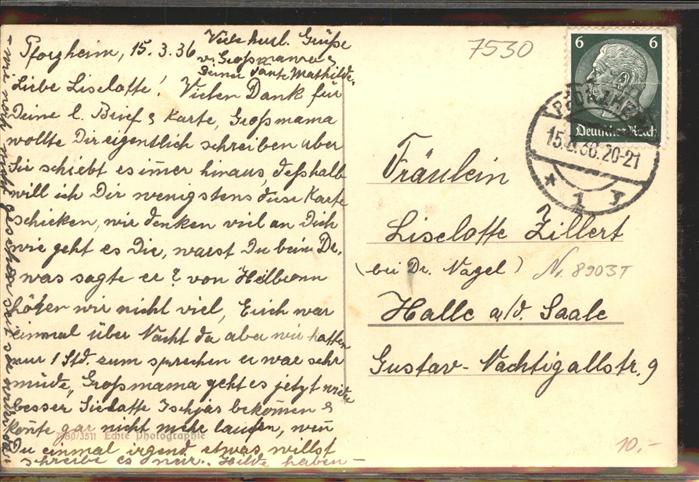 Pforzheim, 15.3.36
Viele herzl. Grüße
v. Großmama &
Deiner Tante Mathilde
Liebe Liselotte! Vielen Dank für
Deine l. Brief & Karte, Großmama
wollte Dir eigentlich schreiben aber
Sie schiebt es immer hinaus, deßhalb
will ich Dir wenigstens diese Karte
schicken, wir denken viel an Dich
wie geht es Dir, warst Du beim Dr.
was sagte er? von Heilbronn
hören wir nicht viel, Erich war
einmal über Nacht da aber wir hatten
nur 1 Std. zum sprechen er war sehr
müde, Großmama geht es jetzt wieder
besser Sie hatte Ischias bekommen &
konnte gar nicht mehr laufen, wenn
Du einmal irgend etwas willst
schreibe es nur. Hilde haben
7530
6 6
Deutsches Reich
PFORZHEIM
15.3.36.20-21
* 1 r
Fräulein
Liselotte Zillert
(bei Dr. Nagel)
N. 8903T
Halle a/d. Saale
Gustav-Nachtigallstr. 9
/3511 Echte Photographie
10.-